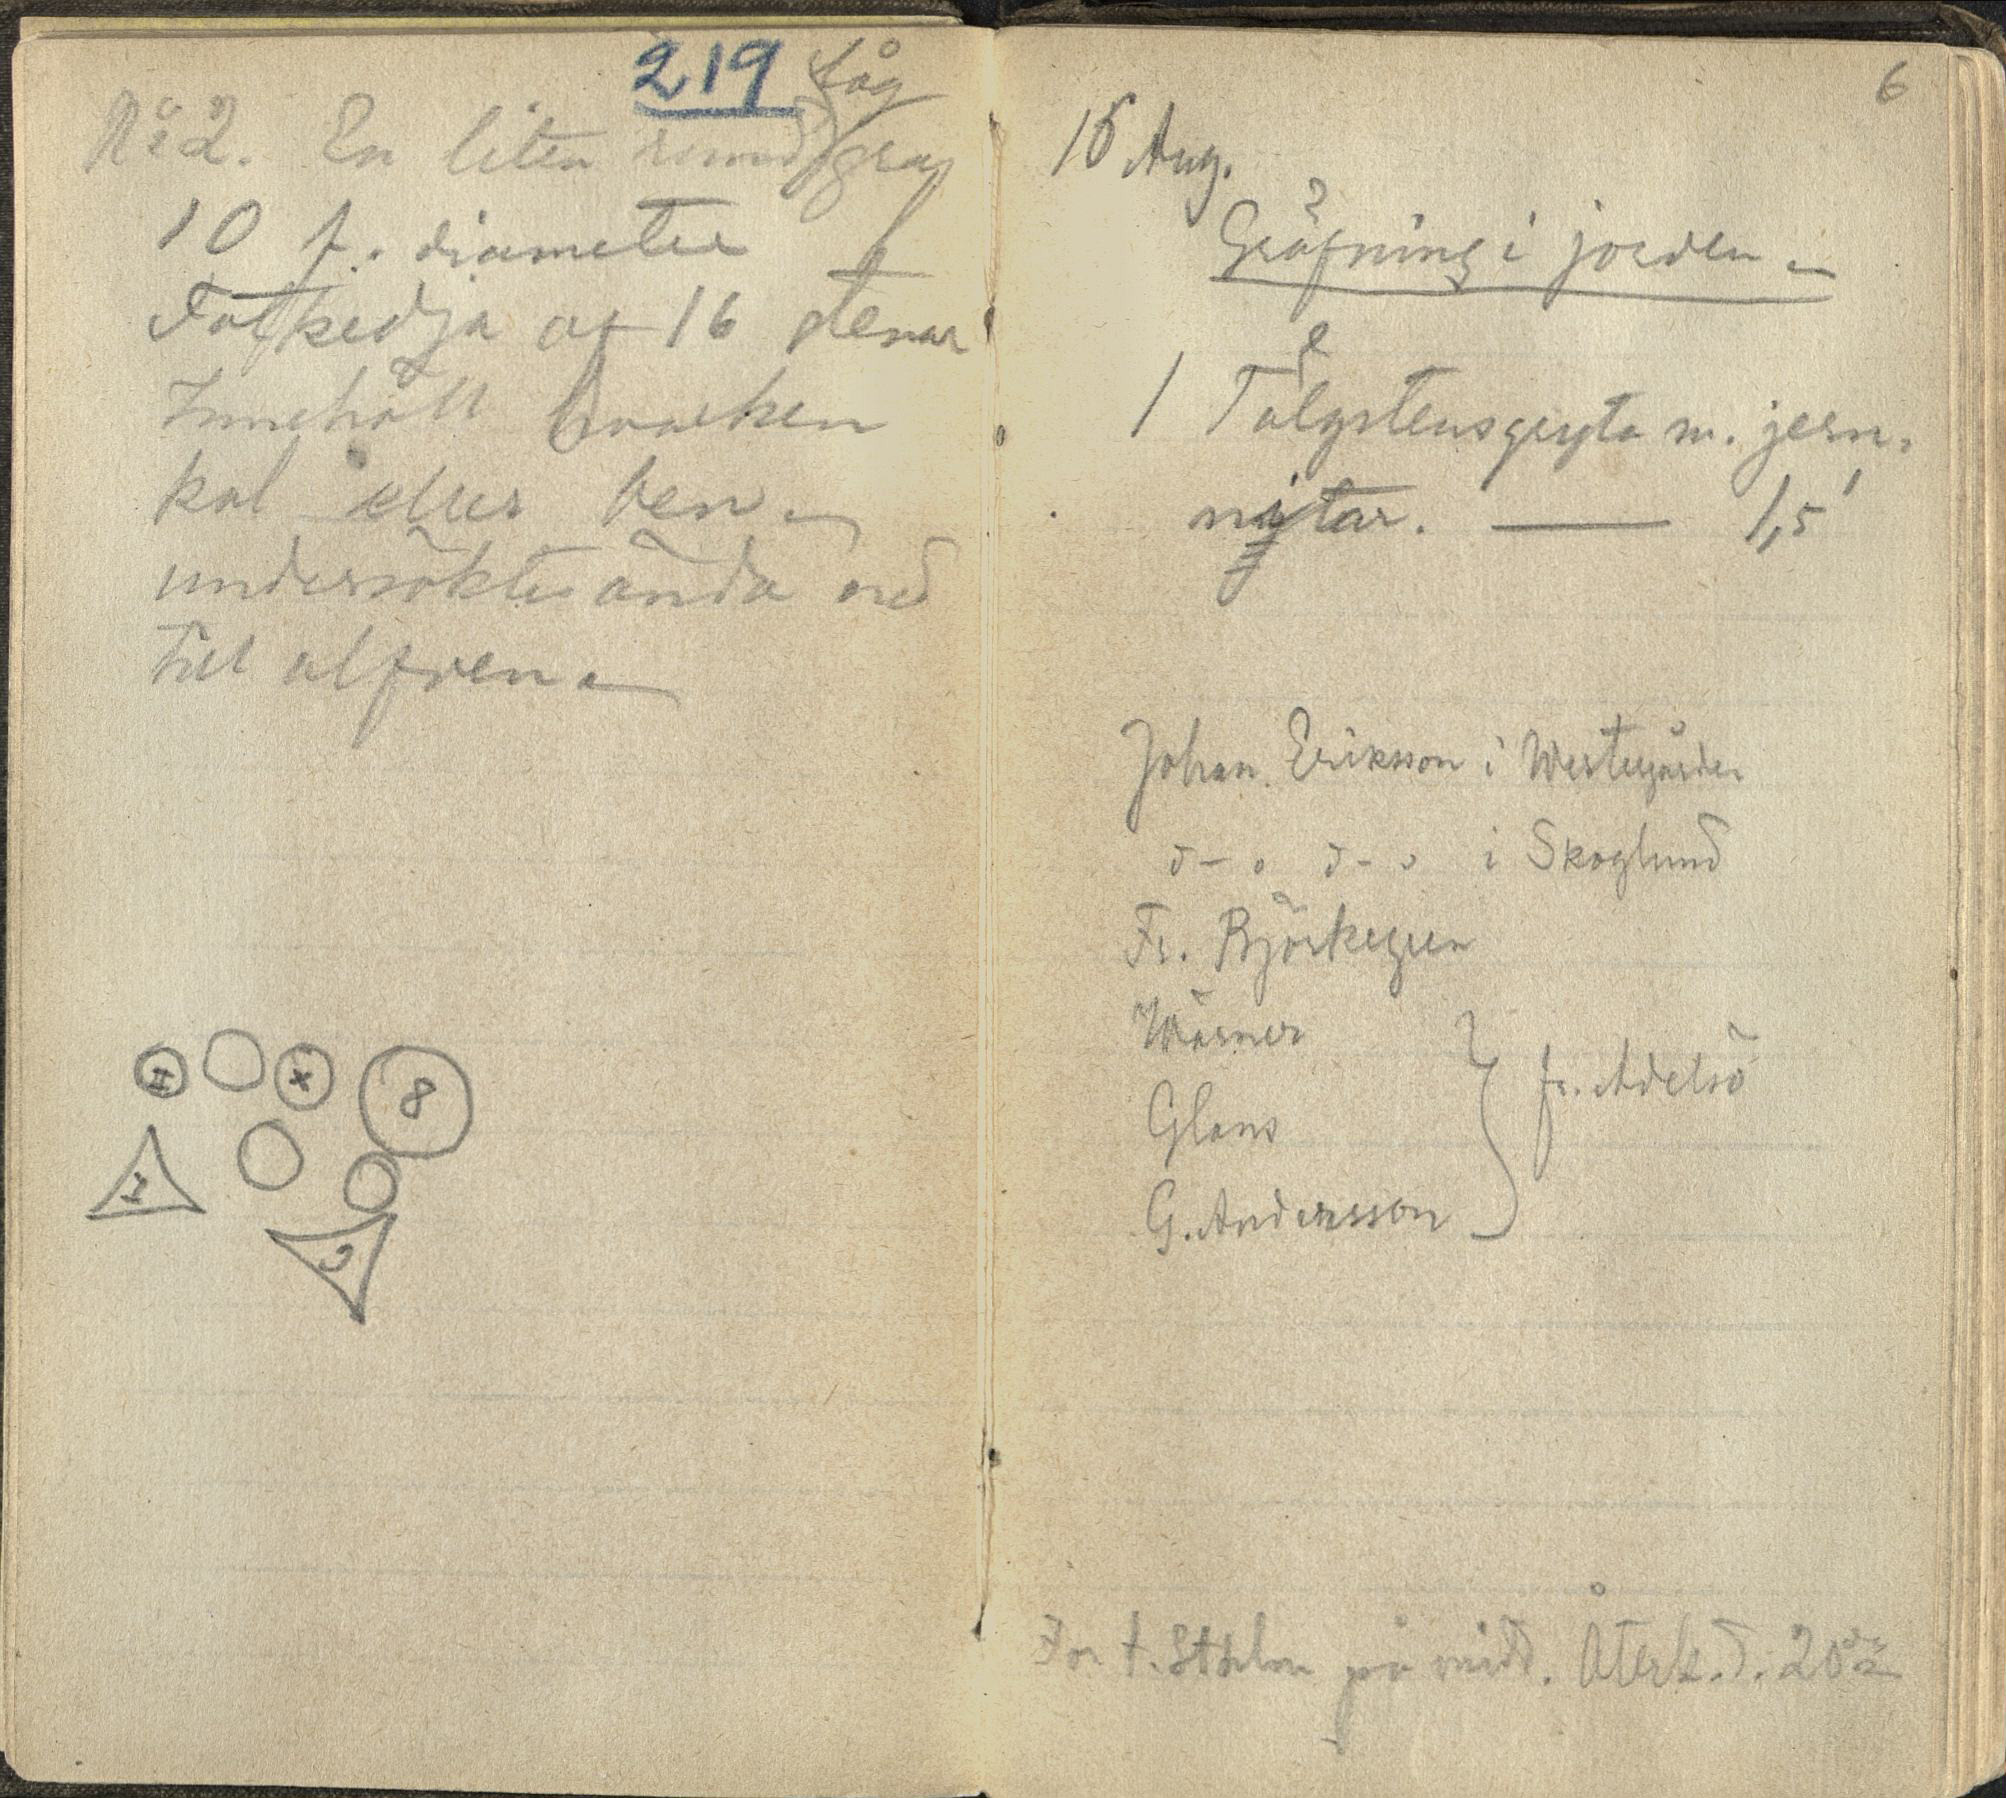 219 låg
No 2. En liten rund graf
10 f. diameter
Fotkedja af 16 stenar
Innehöll hvarken
kol eller ben
undersöktes ända ned
till alfven
II X 8
1
3
6
15 Aug.
Gräfning i jorden
1 Tälgstensgryta m. jern-
nitar. — 1,5'
Johan Eriksson i Westergården
d-o d-o i Skoglund
Fr. Björkegren
Wärner
Glans } fr. Adelsö
G. Andersson
For t. Sthlm på midd. Återk. d. 20de